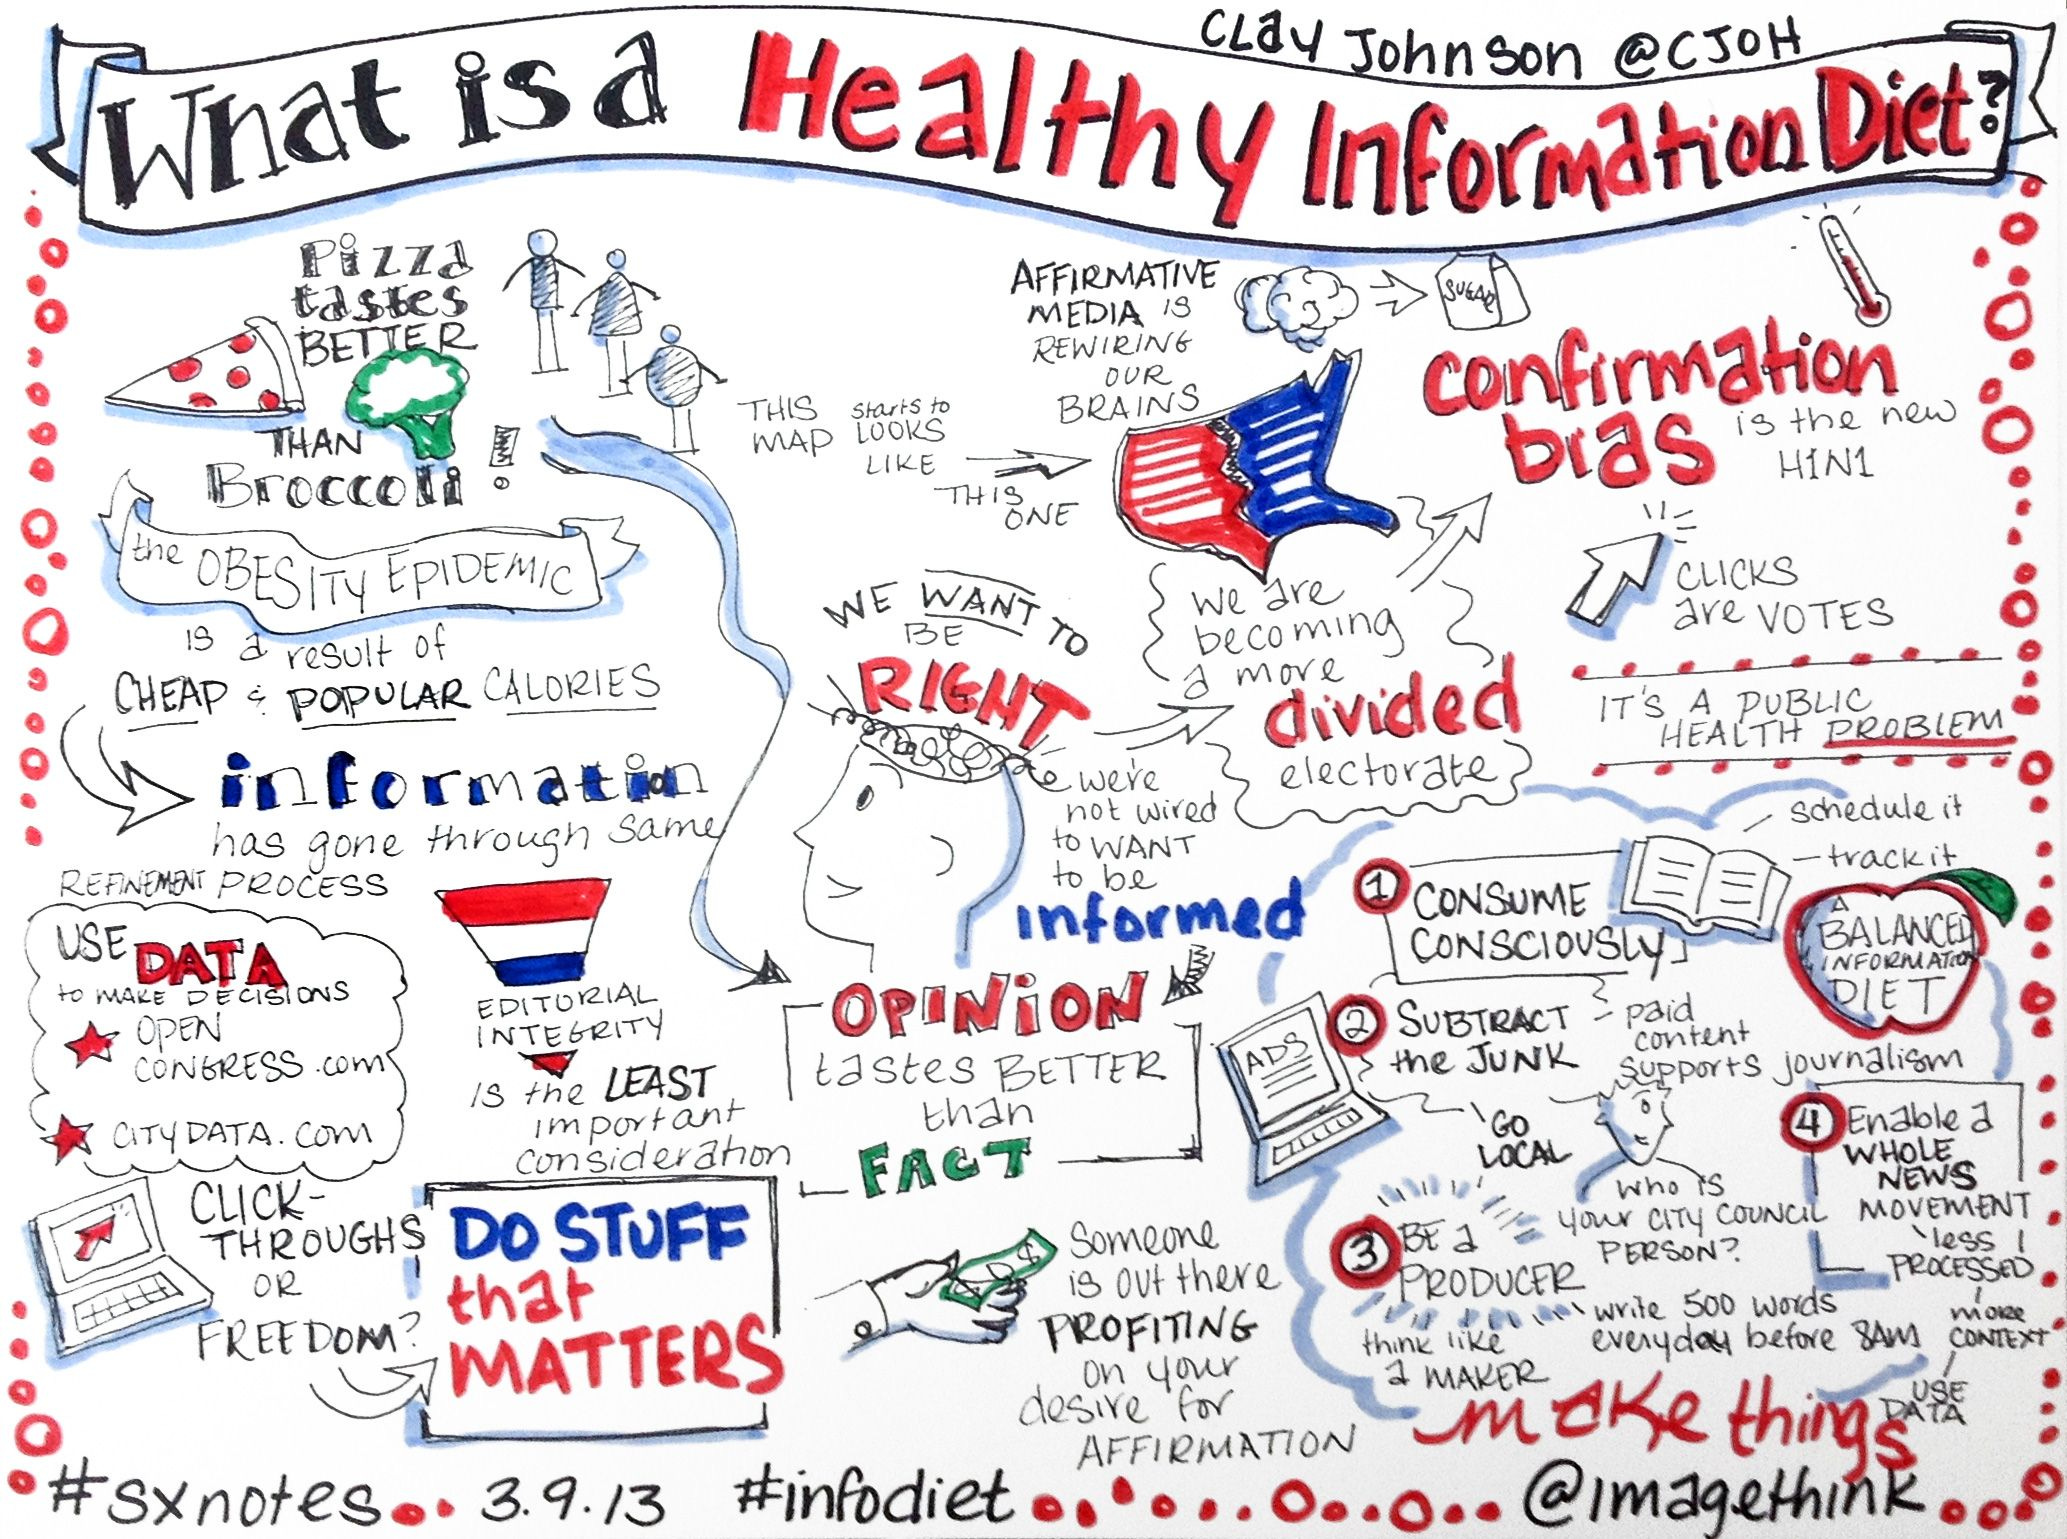 Clay Johnson @CJOH
What is a Healthy Information Diet?
Pizza
tastes
BETTER
THAN
Broccoli!
the OBESITY EPIDEMIC
is a result of
CHEAP & POPULAR CALORIES
information
has gone through same
REFINEMENT PROCESS
USE DATA
to MAKE DECISIONS
OPEN
CONGRESS.com
CITYDATA.com
EDITORIAL
INTEGRITY
IS the LEAST
important
consideration
CLICK-
THROUGHS
OR
FREEDOM?
DO STUFF
that
MATTERS
THIS
MAP
starts to
LOOKS
LIKE
THIS
ONE
AFFIRMATIVE
MEDIA is
REWIRING
OUR
BRAINS
SUGAR
confirmation
bias
is the new
H1N1
CLICKS
are VOTES
IT'S A PUBLIC
HEALTH PROBLEM
WE WANT TO
BE
RIGHT
we're
not wired
to WANT
to be
informed
we are
becoming
a more
divided
electorate
OPINION
tastes BETTER
than
FACT
Someone
is out there
PROFITING
on your
desire for
AFFIRMATION
A
BALANCED
INFORMATION
DIET
1 CONSUME
CONSCIOUSLY
schedule it
track it
2 SUBTRACT
the JUNK
ADS
paid
content
supports journalism
GO
LOCAL
who is
your CITY COUNCIL
PERSON?
3 BE a
PRODUCER
think like
a MAKER
write 500 words
everyday before 8AM
4 Enable a
WHOLE
NEWS
MOVEMENT
less
PROCESSED
more
CONTEXT
USE
DATA
make things
#sxnotes 3.9.13 #infodiet @imagethink